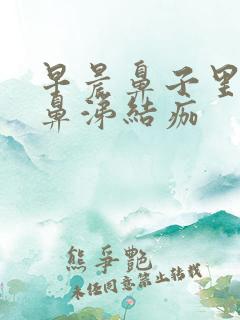 早晨鼻子里
鼻涕結痂
熊爭艷
未经同意禁止转载